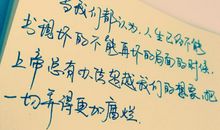 当我们都认为,人生已不能
书调坏的不能再坏的局面的时候,
上帝总有办法超越我们的想象,把
一切弄得更加腐烂.